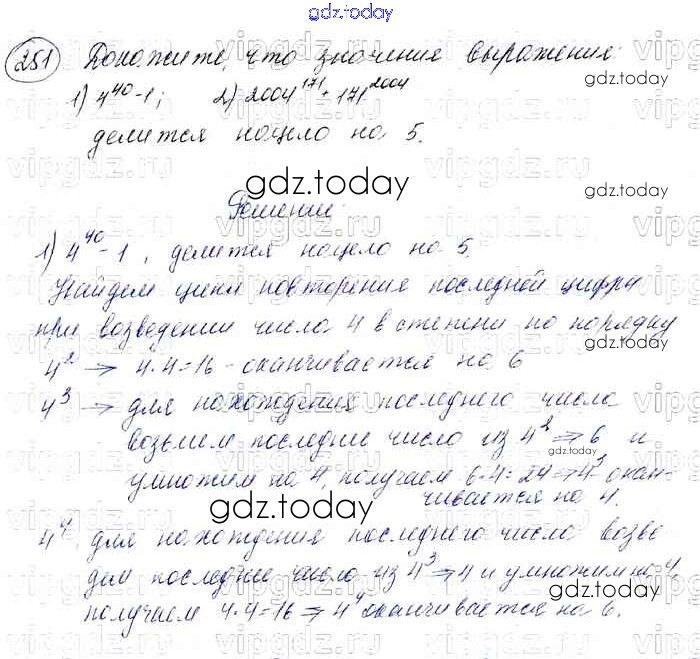 gdz.today
251 Докажите, что значения выражения:
1) 4^40-1; 2) 2004^171+171^2004
gdz.today
делится нацело на 5.
gdz.today
gdz.today
Решение:
1) 4^40-1, делится нацело на 5.
Найдем цикл повторения последней цифры
при возведении числа 4 в степени по порядку
gdz.today
4^2 → 4·4=16 - оканчивается на 6
4^3 → для нахождения последнего числа
возьмем последние число из 4^2 ⇒ 6 и
gdz.today
умножим на 4, получаем 6·4=24 ⇒ 4^3 окан-
чивается на 4.
gdz.today
4^4, для нахождения последнего число возве
дем последние число из 4^3 ⇒ 4 и умножим на 4
gdz.today
получаем 4·4=16 ⇒ 4^4 оканчивается на 6.